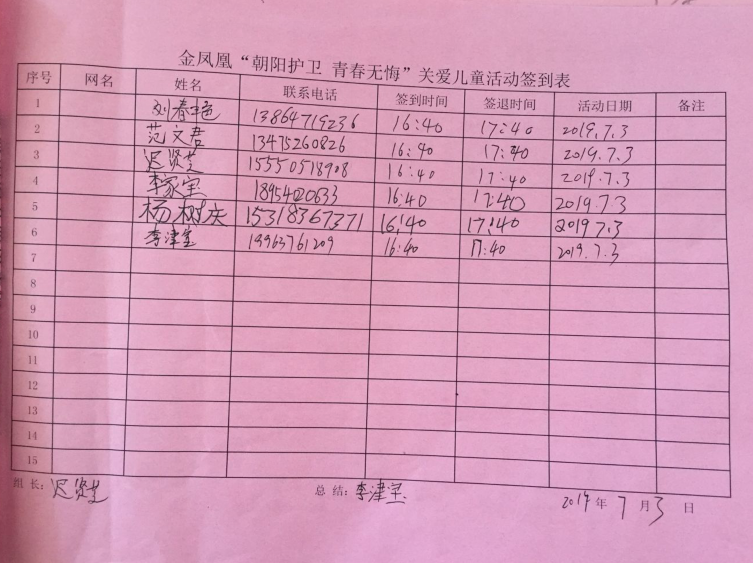 金凤凰“朝阳护卫 青春无悔”关爱儿童活动签到表
序号 网名 姓名 联系电话 签到时间 签退时间 活动日期 备注
1 刘春艳 13864719236 16:40 17:40 2019.7.3
2 范文君 13475260826 16:40 17:40 2019.7.3
3 迟贤芝 15550518908 16:40 17:40 2019.7.3
4 李家宝 18954020633 16:40 17:40 2019.7.3
5 杨树庆 15318367371 16:40 17:40 2019 7.3
6 李津宝 13963761209 16:40 17:40 2019.7.3
7
8
9
10
11
12
13
14
15
组 长: 迟贤芝 总 结: 李津宝 2019 年 7 月 3 日